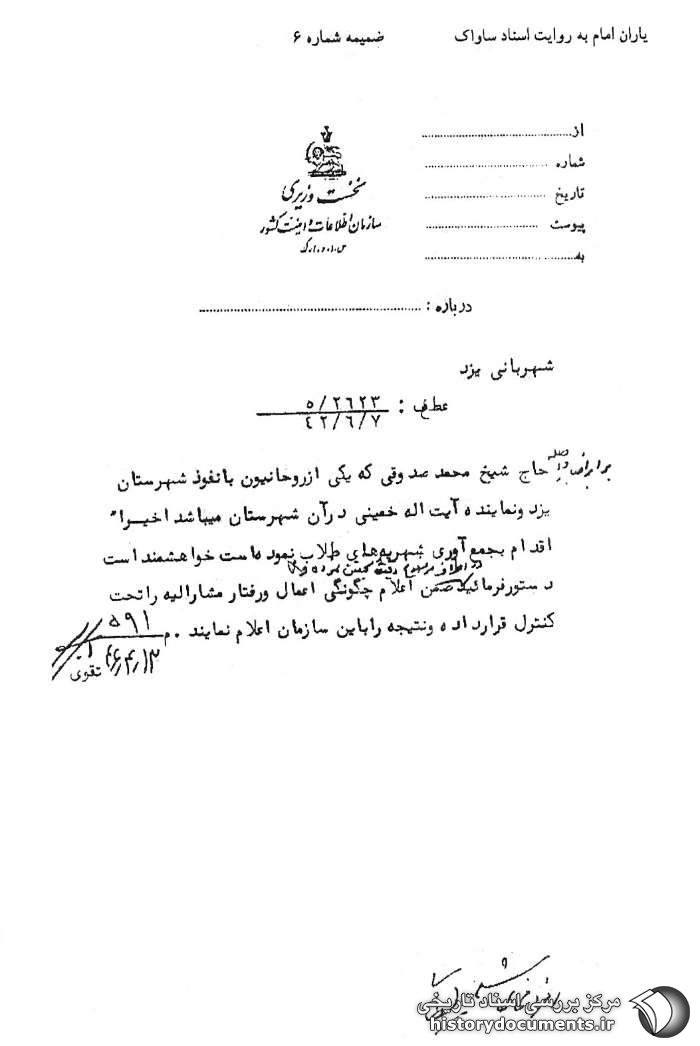 یاران امام به روایت اسناد ساواک
ضمیمه شماره ۶
نخست وزیری
سازمان اطلاعات و امنیت کشور
س.ا.و.ا.ک
از
شماره
تاریخ
پیوست
به
درباره :
شهربانی یزد
عطف : ۵/۲۶۲۳
۴۲/۶/۷
برابر اطلاع واصله حاج شیخ محمد صدوقی که یکی ازروحانیون بانفوذ شهرستان
یزد ونماینده آیت اله خمینی درآن شهرستان میباشد اخیرا"
اقدام بجمع آوری شهریه‌های طلاب نموده است خواهشمند است
در اطراف موضوع
دستورفرمائید ضمن اعلام چگونگی اعمال ورفتار مشارالیه راتحت
کنترل قرارداده ونتیجه راباین سازمان اعلام نمایند .م
۵۹۱
تقوی
مرکز بررسی اسناد تاریخی
historydocuments.ir